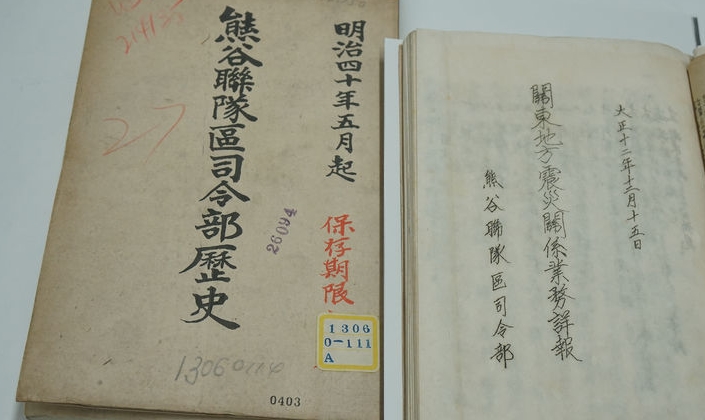 明治四十年五月起
保存期限
熊谷聯隊區司令部歷史
26094
1306
0-111
A
0403
大正十二年十二月十五日
關東地方震災關係業務詳報
熊谷聯隊區司令部